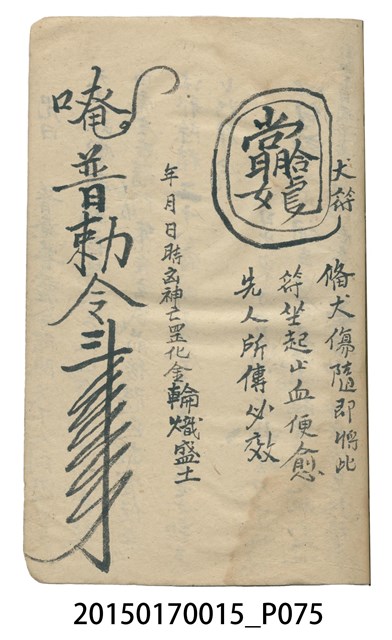 犬符
脩犬傷隨即將此
符坐起止血便愈
先人所傳必效
年月日時凶神亡罡化金輪熾盛土
唵普勅令
20150170015_P075